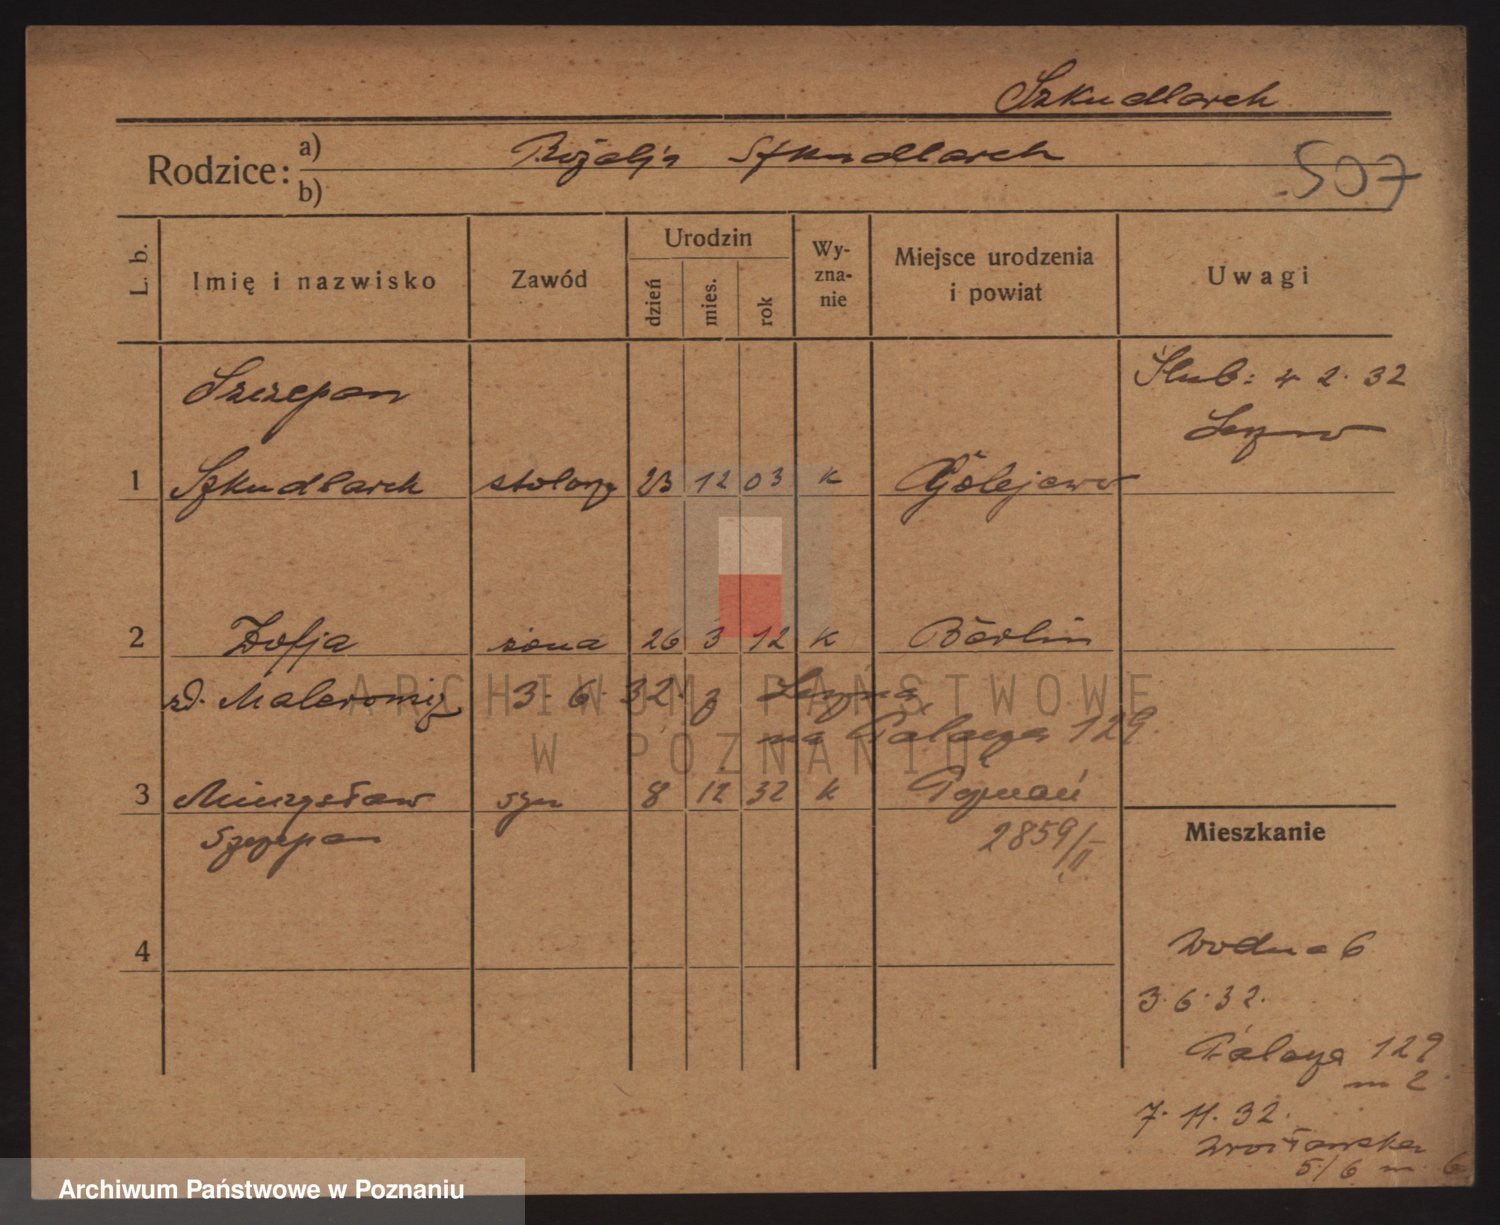 Szkudlarek
Rodzice: a) Rozalja Szkudlarek
b)
507
L. b.
Imię i nazwisko
Zawód
Urodzin
dzień
mies.
rok
Wy-
zna-
nie
Miejsce urodzenia
i powiat
Uwagi
Szczepan
Ślub: 4 2. 32
1 Szkudlarek stolarz 23 12 03 k Golejewo
2 Zofja żona 26 3 12 k Berlin
3. 6. 32. z
na Palacza 129
3 Mieczysław syn 8 12 32 k Poznań
Szczepan 2859/II
Mieszkanie
4
Wodna 6
3. 6. 32.
Palacza 129
m 2.
7. 11. 32.
Wrocławska
5/6 m. 6
ARCHIWUM PAŃSTWOWE
W POZNANIU
Archiwum Państwowe w Poznaniu